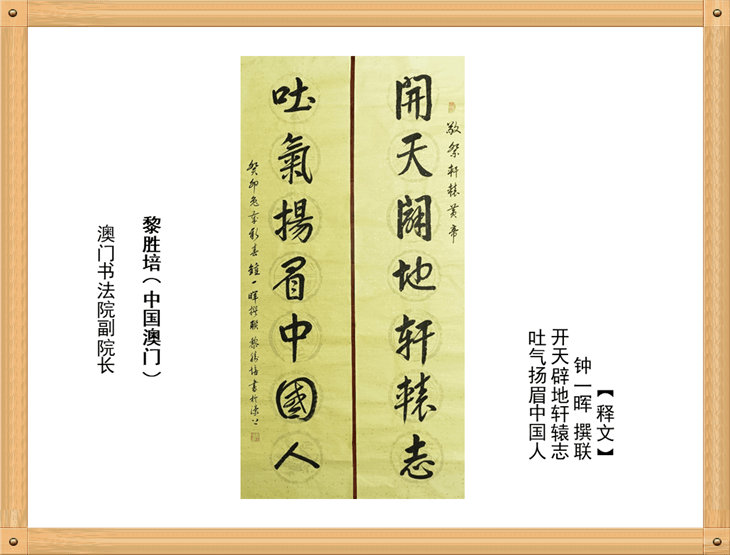 【释文】
钟一晖 撰联
开天辟地轩辕志
吐气扬眉中国人
敬祭轩辕黄帝
開天闢地轩辕志
吐氣揚眉中國人
癸卯兔年新春鍾一晖撰联黎勝培書於濠江
黎胜培（中国澳门）
澳门书法院副院长